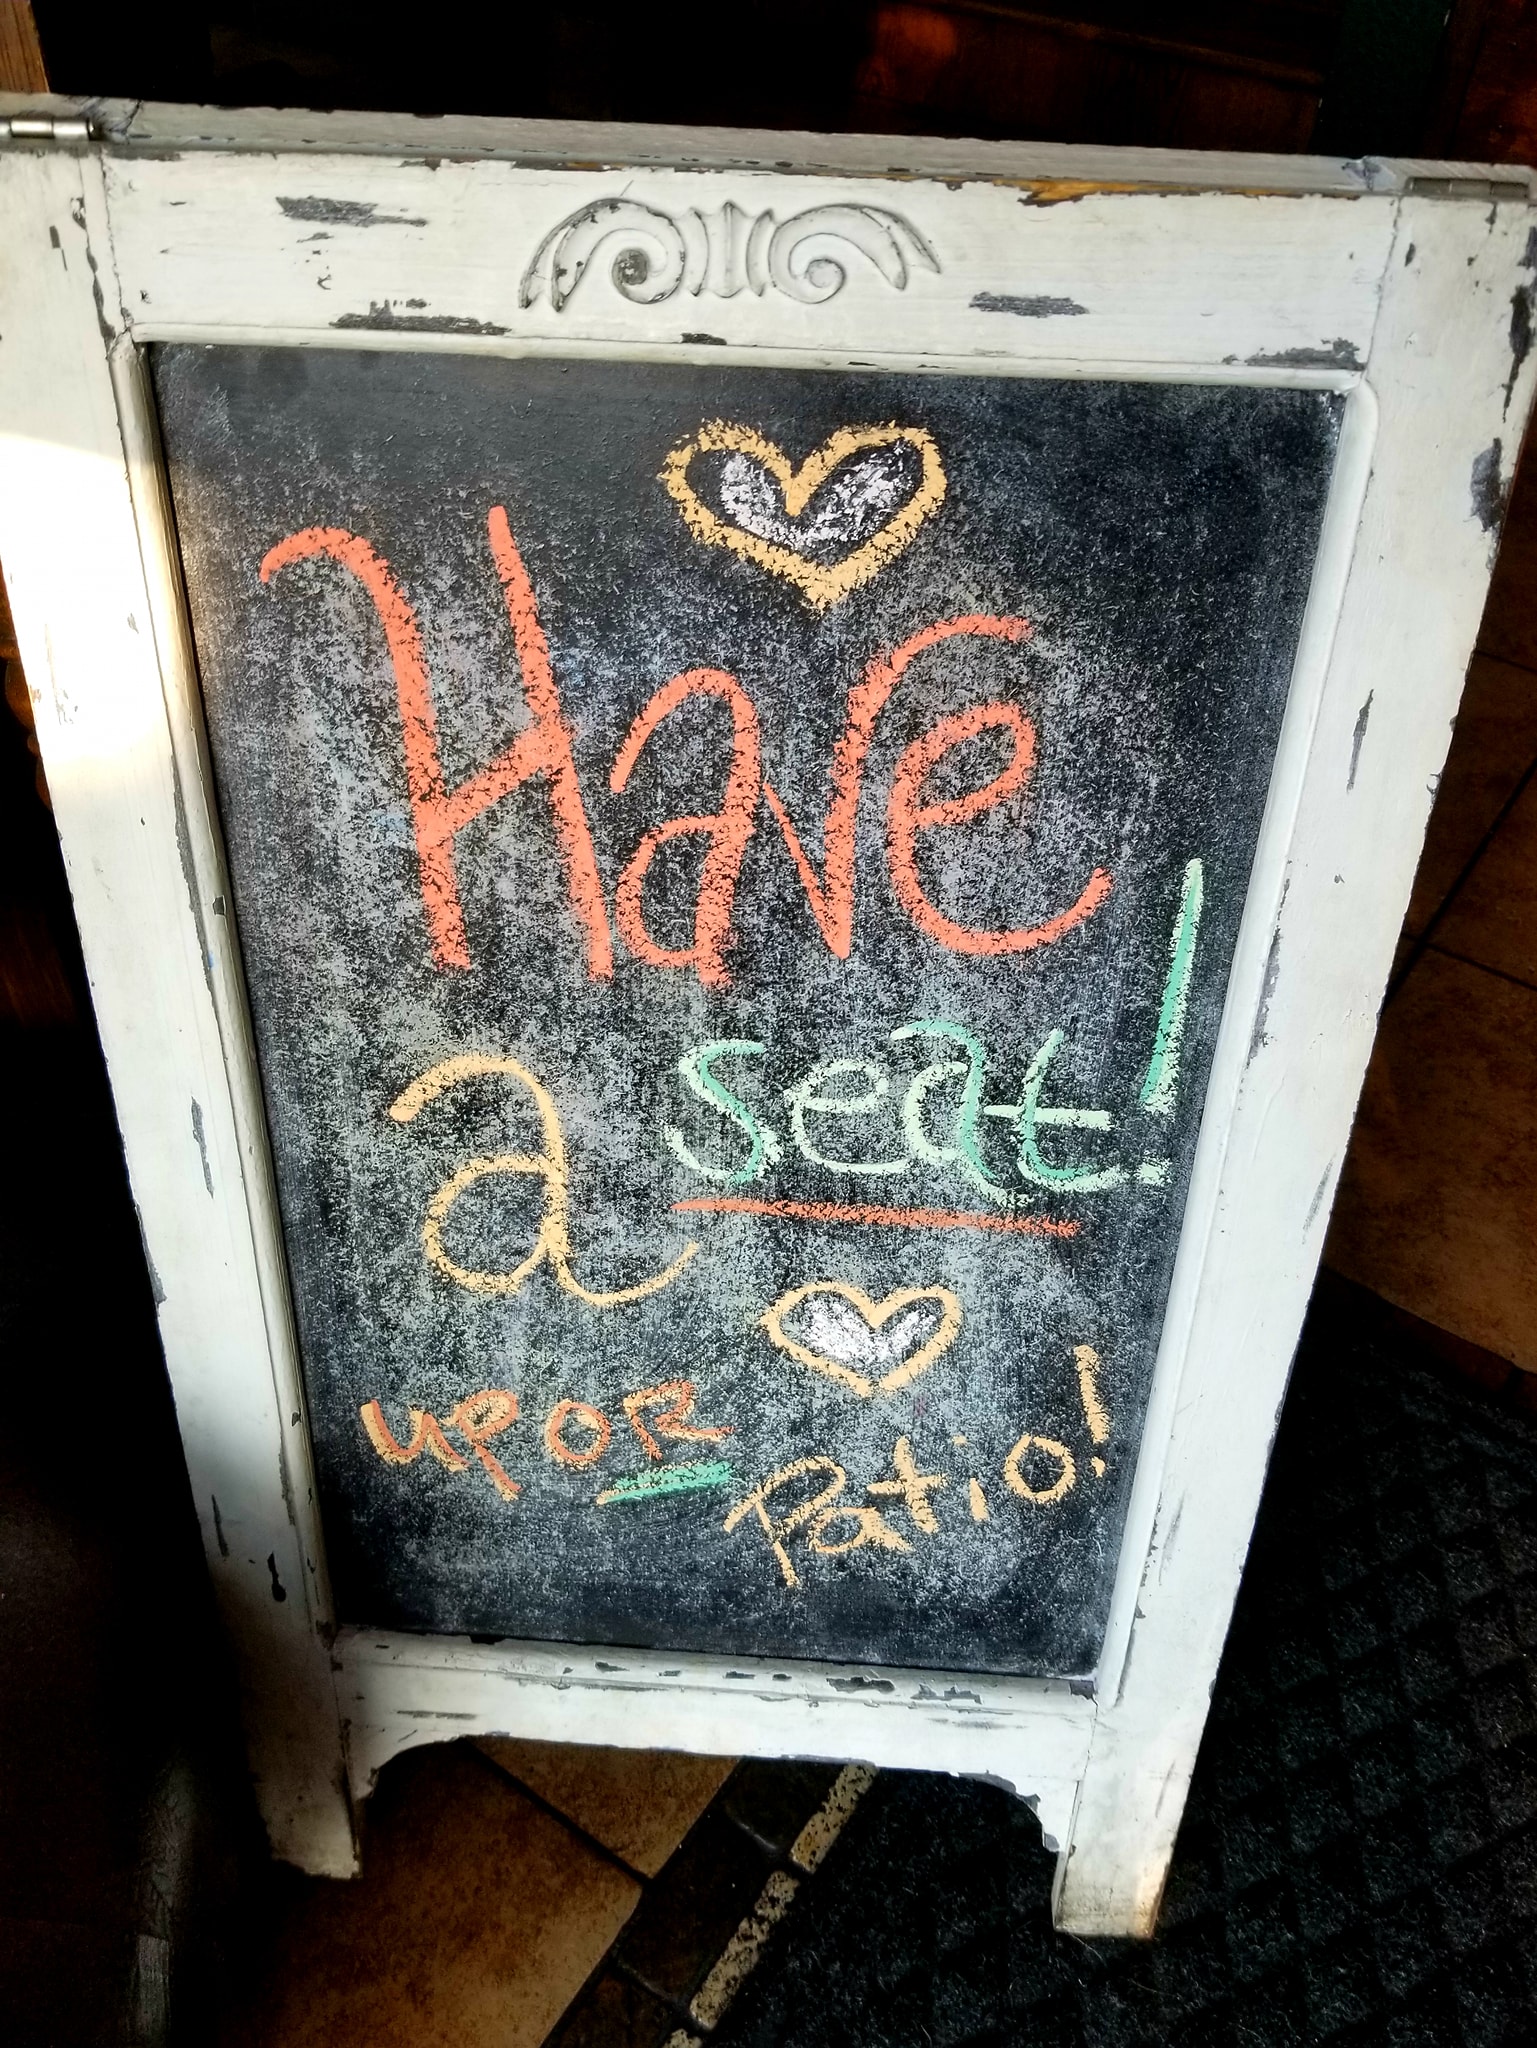 Have
a seat!
up OR
Patio!